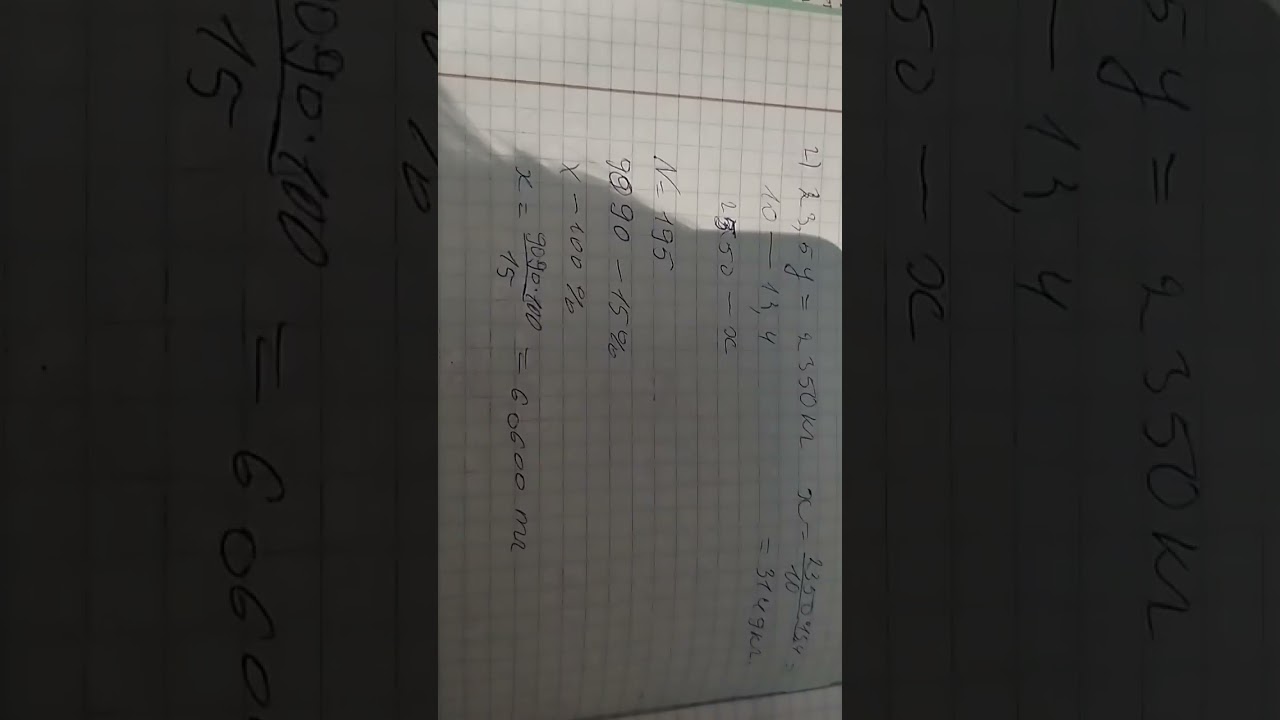 2) 23,5 ц = 2350 кг x = 2350·13,4/10 =
10 — 13,4 = 3149 кг
2350 — x
N = 195
9090 — 15%
x — 100%
x = 9090·100/15 = 60600 тг